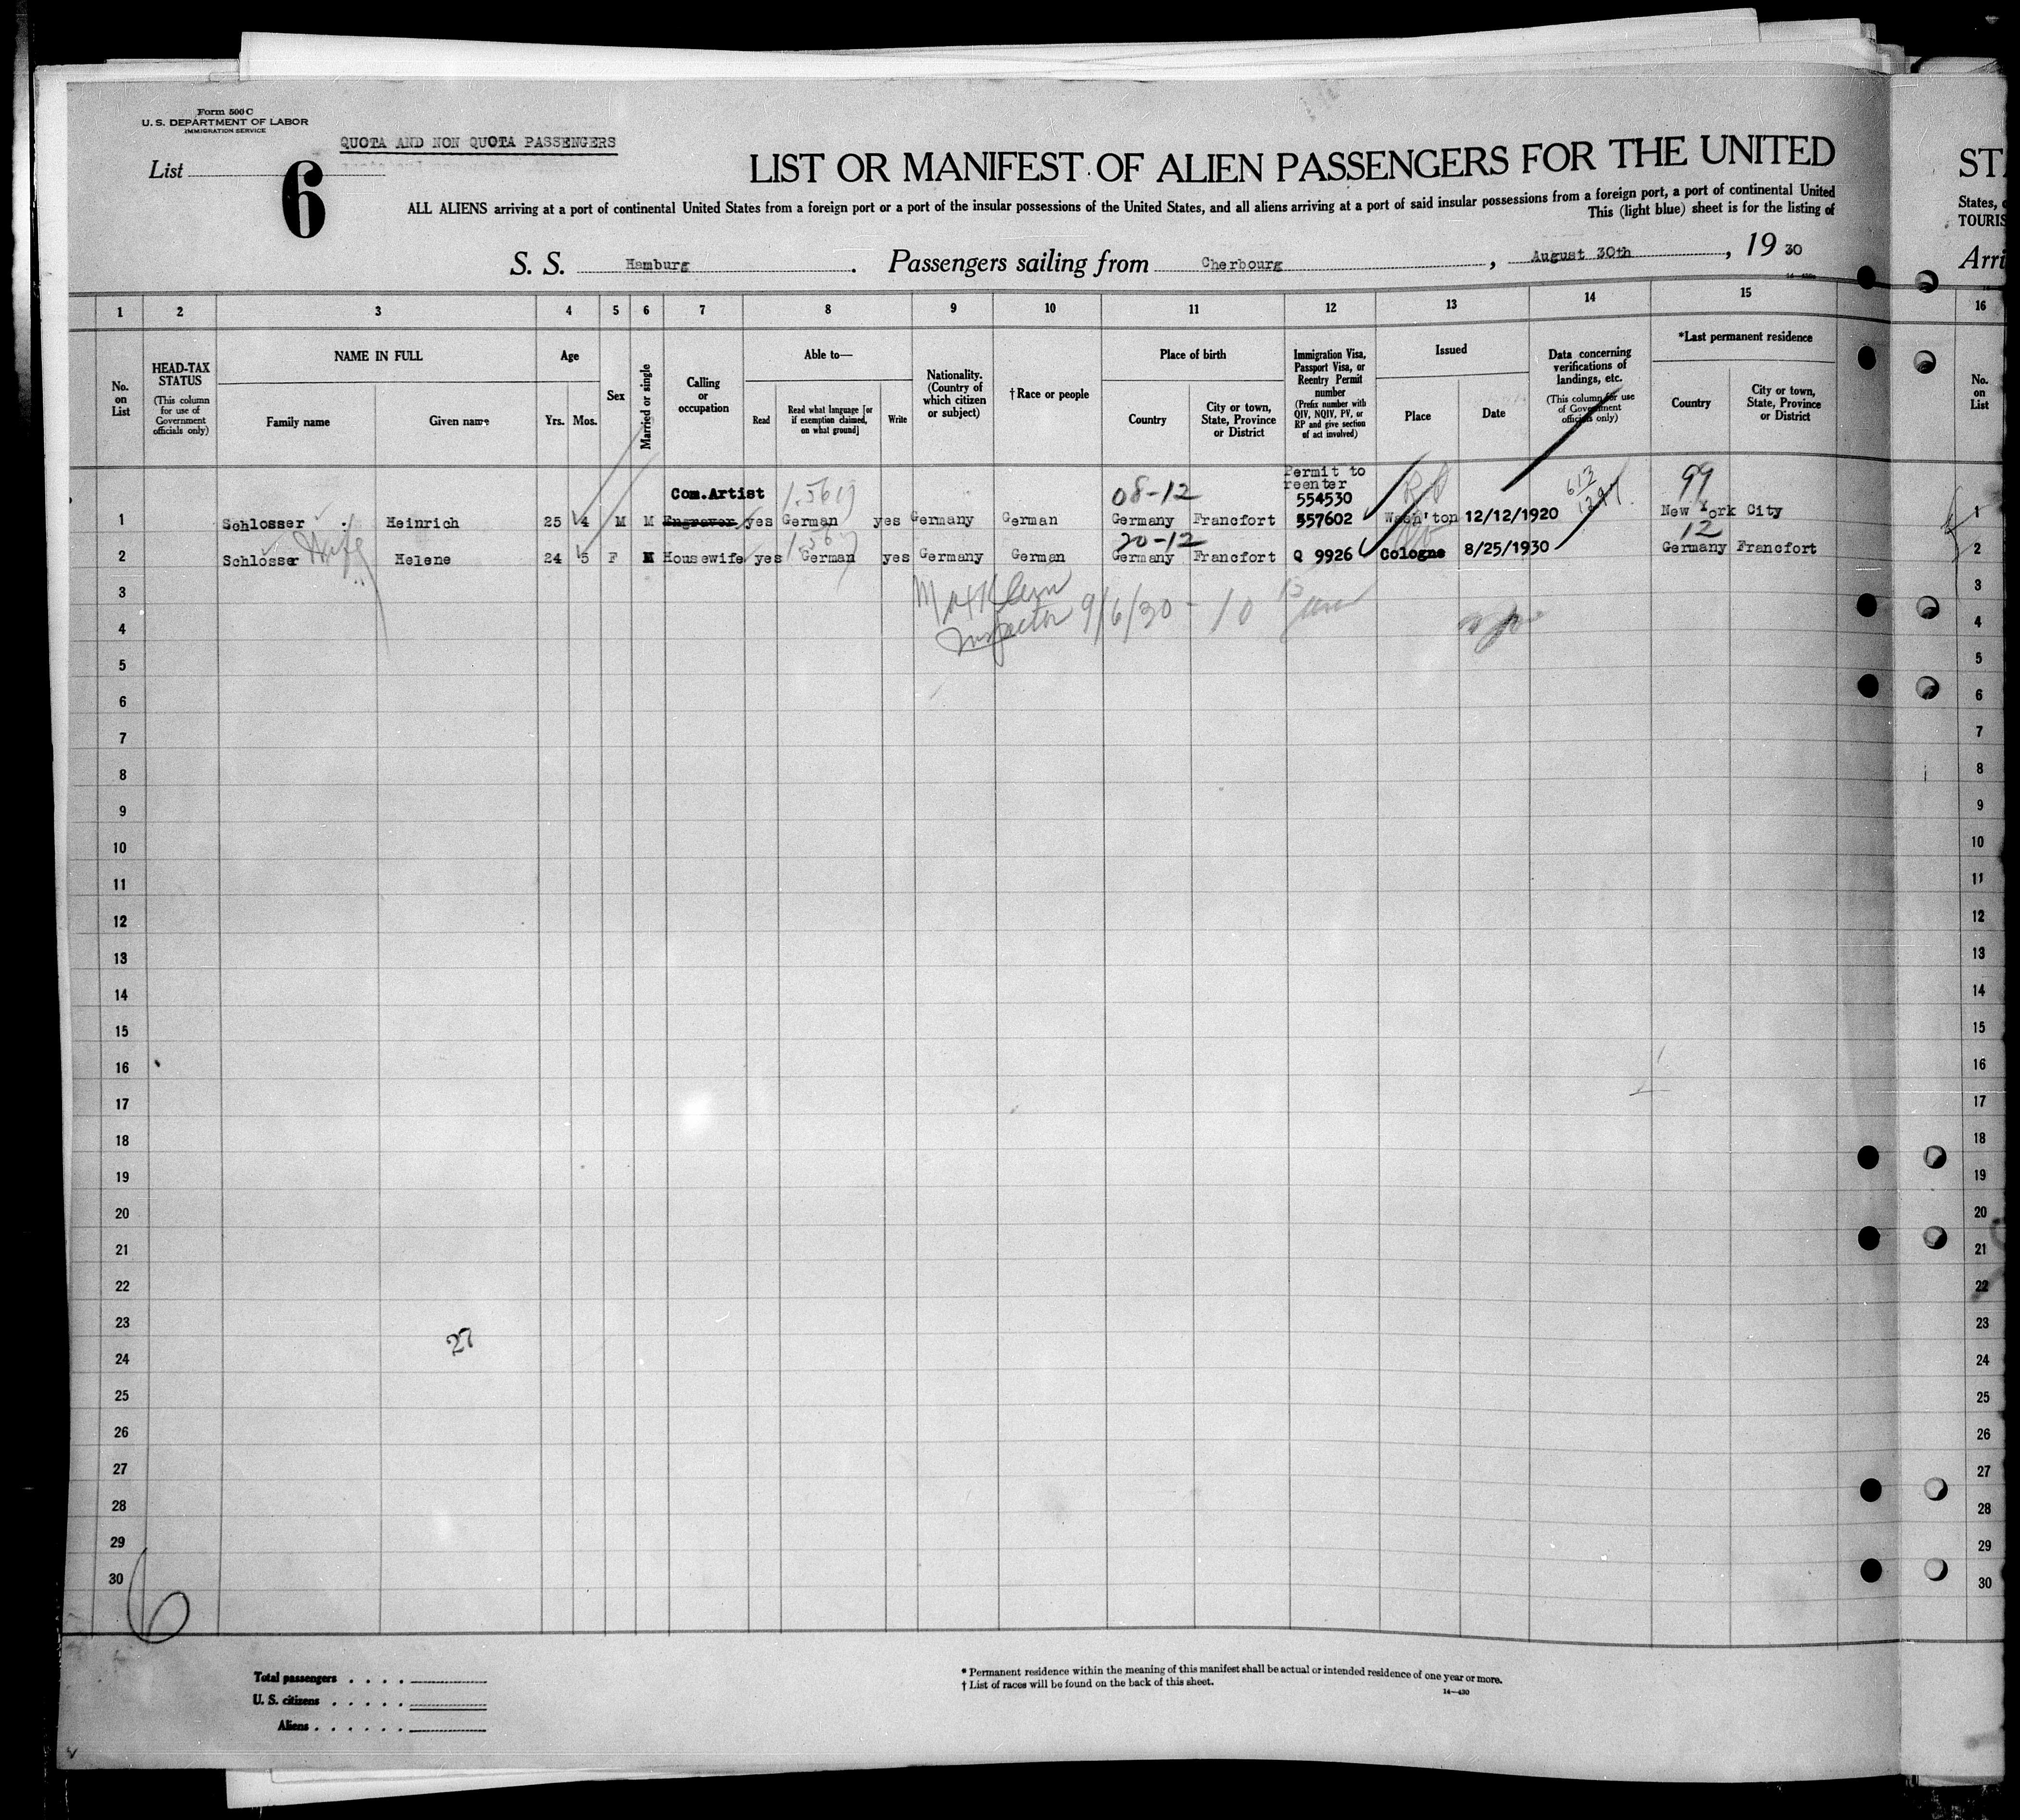 Form 500 C
U. S. DEPARTMENT OF LABOR
IMMIGRATION SERVICE
QUOTA AND NON QUOTA PASSENGERS
List 6
LIST OR MANIFEST OF ALIEN PASSENGERS FOR THE UNITED
ST
ALL ALIENS arriving at a port of continental United States from a foreign port or a port of the insular possessions of the United States, and all aliens arriving at a port of said insular possessions from a foreign port, a port of continental United
States,
This (light blue) sheet is for the listing of
TOURIS
S. S. Hamburg. Passengers sailing from Cherbourg, August 30th, 19 30
Arri
1 2 3 4 5 6 7 8 9 10 11 12 13 14 15 16
No. on List
HEAD-TAX STATUS (This column for use of Government officials only)
NAME IN FULL
Family name
Given name
Age
Yrs. Mos.
Sex
Married or single
Calling or occupation
Able to—
Read
Read what language [or if exemption claimed, on what ground]
Write
Nationality. (Country of which citizen or subject)
† Race or people
Place of birth
Country
City or town, State, Province or District
Immigration Visa, Passport Visa, or Reentry Permit number (Prefix number with QIV, NQIV, PV, or RP and give section of act involved)
Issued
Place
Date
Data concerning verifications of landings, etc. (This column for use of Government officials only)
*Last permanent residence
Country
City or town, State, Province or District
No. on List
Permit to
reenter
Com.Artist 08-12 554530 RP 613 99
1 Schlosser Heinrich 25 4 M M Engraver yes German yes Germany German Germany Francfort 557602 Wash'ton 12/12/1920 New York City 1
Wife 20-12 12
2 Schlosser Helene 24 5 F M Housewife yes German yes Germany German Germany Francfort Q 9926 Cologne 8/25/1930 Germany Francfort 2
3 3
Inspector 9/6/30 - 10
4 4
5 5
6 6
7 7
8 8
9 9
10 10
11 11
12 12
13 13
14 14
15 15
16 16
17 17
18 18
19 19
20 20
21 21
22 22
23 23
27
24 24
25 25
26 26
27 27
28 28
29 29
30 30
6
Total passengers . . . .
U. S. citizens . . . . .
Aliens . . . . . .
* Permanent residence within the meaning of this manifest shall be actual or intended residence of one year or more.
† List of races will be found on the back of this sheet.
14—430